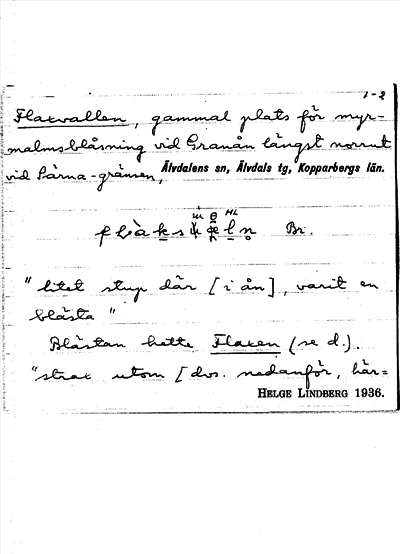 1-2
Flaxvallen, gammal plats för myr-
malmsblåsning vid Granån längst norrut
vid Särna-gränsen, Älvdalens sn, Älvdals tg, Kopparbergs län.
Br.
"litet stup där [i ån], varit en
blästa"
Blästan hette Flaxen (se d.).
"strax utom [dvs. nedanför, här=
HELGE LINDBERG 1936.